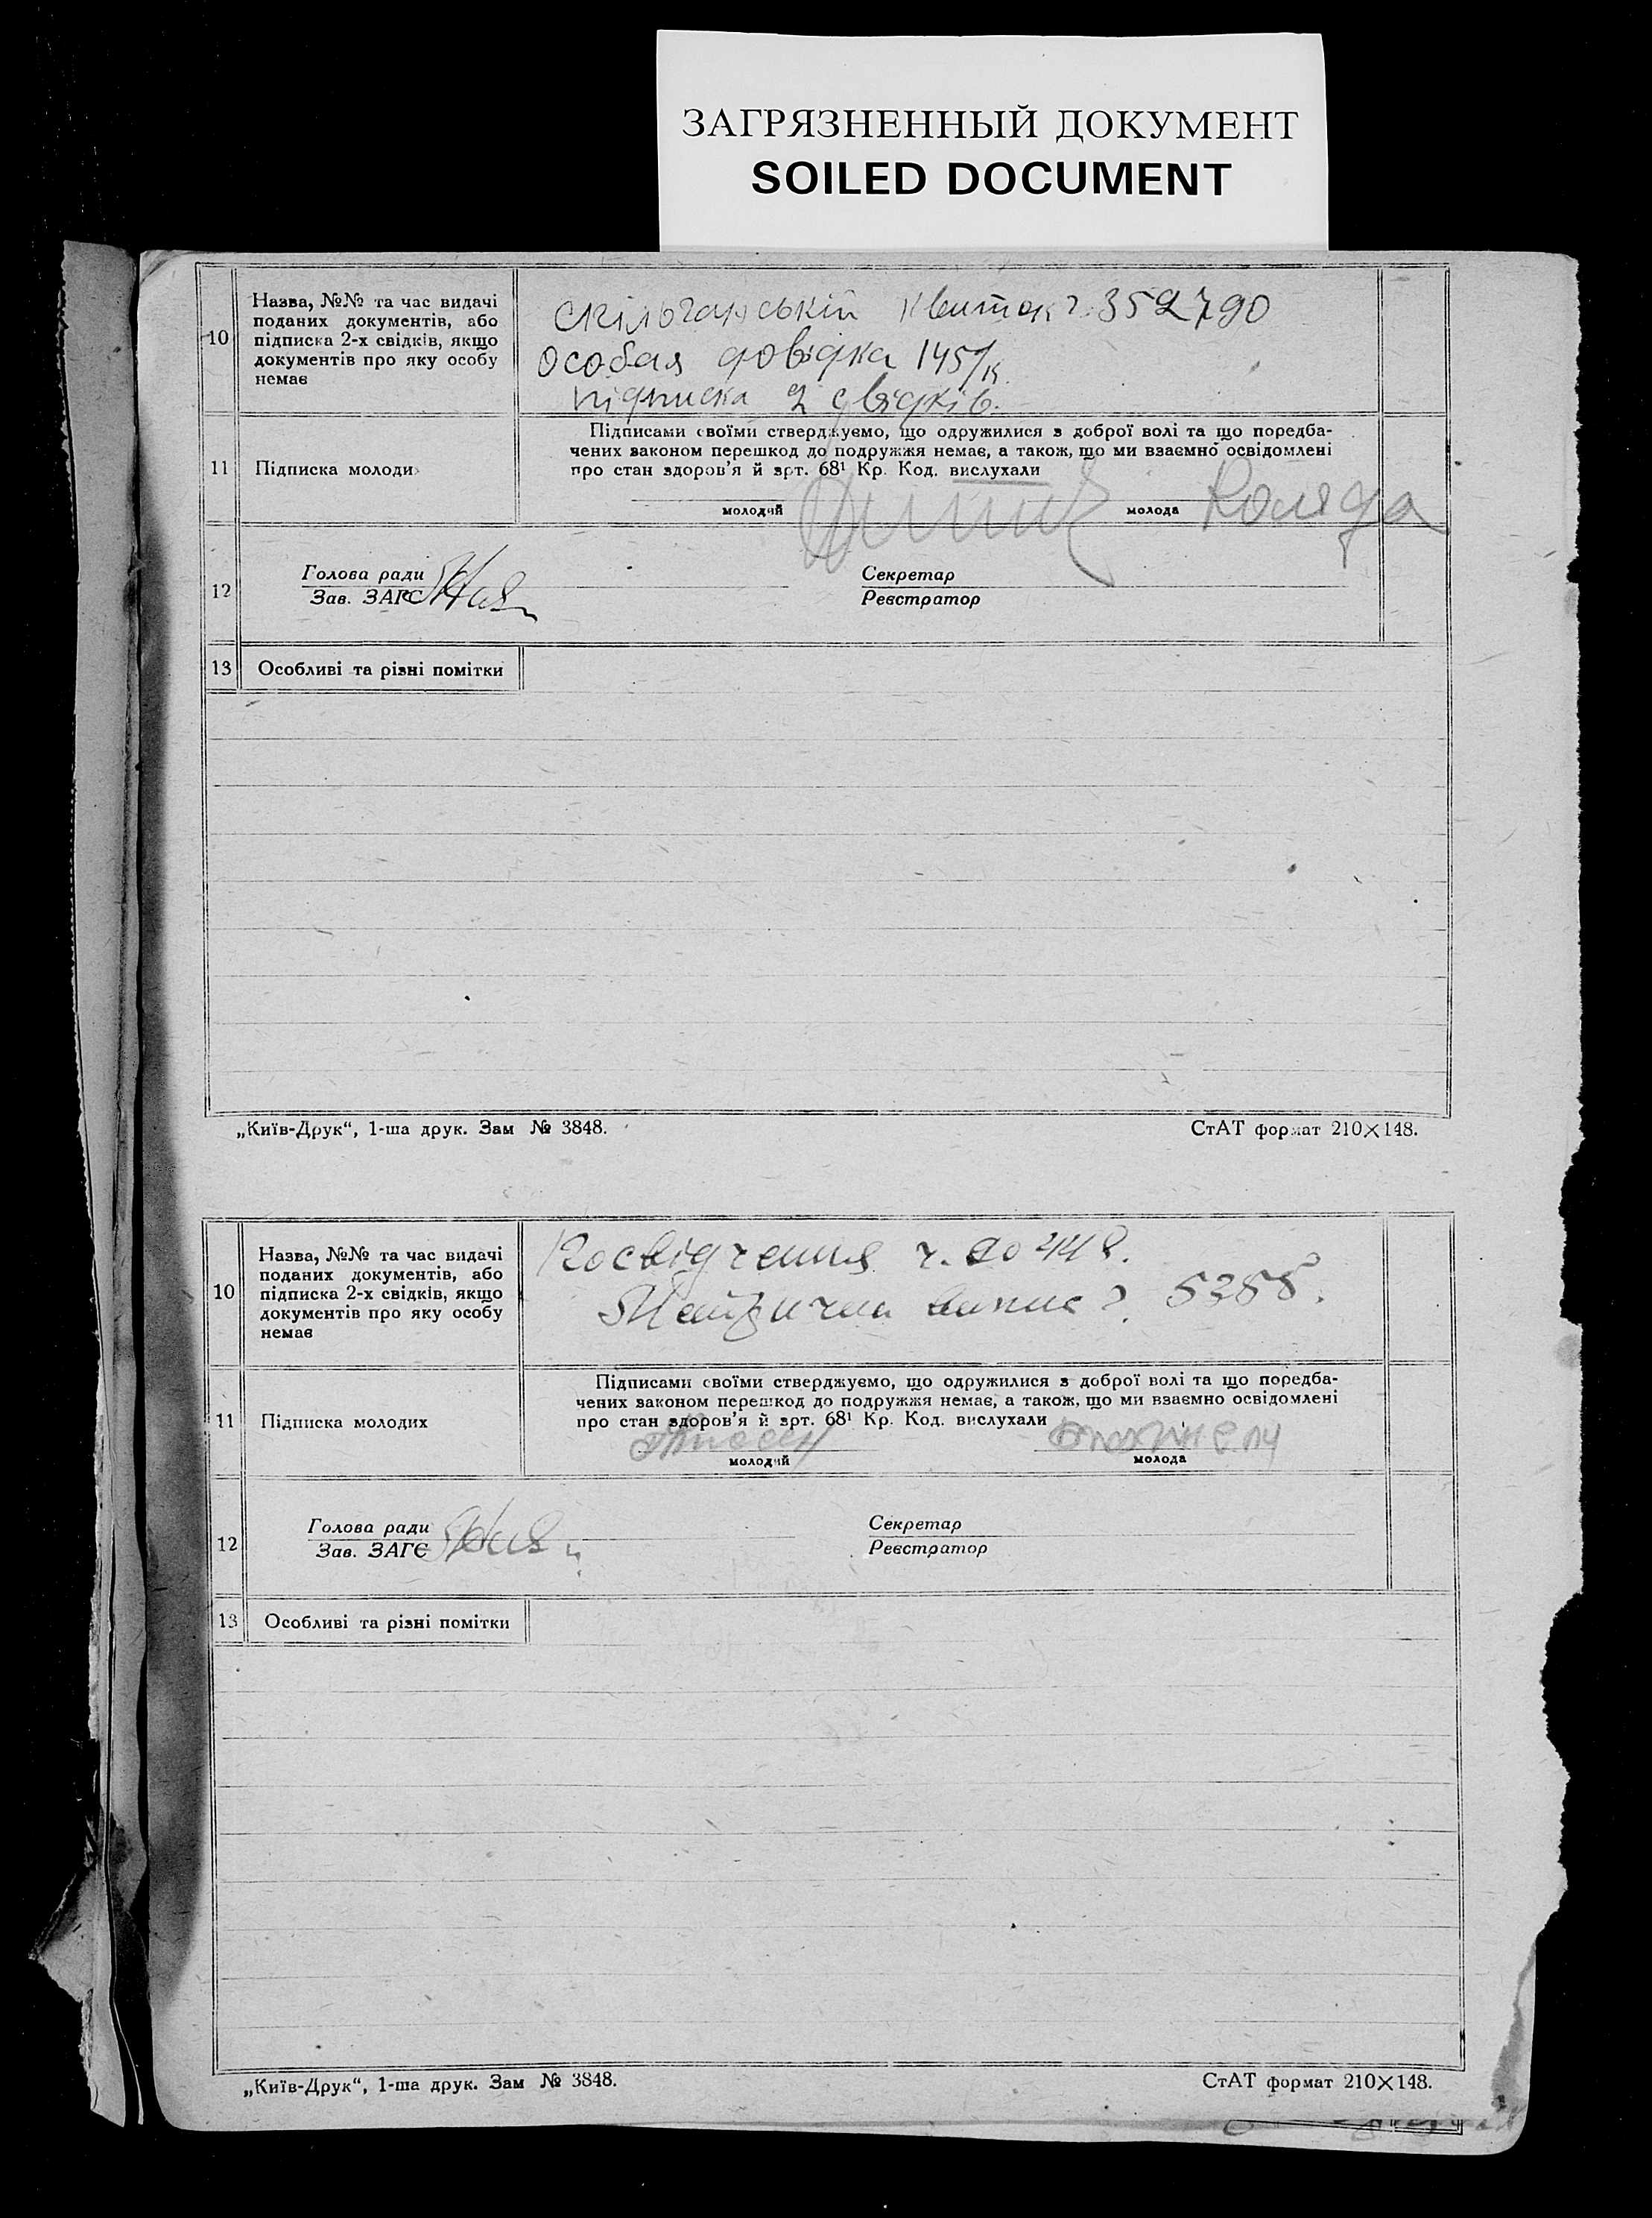 ЗАГРЯЗНЕННЫЙ ДОКУМЕНТ
SOILED DOCUMENT
10
Назва, №№ та час видачі
поданих документів, або
підписка 2-х свідків, якщо
документів про яку особу
немає
квиток ч. 352790
особая довідка 145/к
підписка 2 свідків.
11
Підписка молоди
Підписами своїми стверджуємо, що одружилися з доброї волі та що поредба-
чених законом перешкод до подружжя немає, а також, що ми взаємно освідомлені
про стан здоров'я й арт. 68¹ Кр. Код. вислухали
молодий
молода Коляда
12
Голова ради
Зав. ЗАГС
Секретар
Реєстратор
13
Особливі та різні помітки
„Київ-Друк“, 1-ша друк. Зам № 3848.
СтАТ формат 210×148.
10
Назва, №№ та час видачі
поданих документів, або
підписка 2-х свідків, якщо
документів про яку особу
немає
Посвідчення ч.
випис 5355.
11
Підписка молодих
Підписами своїми стверджуємо, що одружилися з доброї волі та що поредба-
чених законом перешкод до подружжя немає, а також, що ми взаємно освідомлені
про стан здоров'я й арт. 68¹ Кр. Код. вислухали
молодий
молода
12
Голова ради
Зав. ЗАГС
Секретар
Реєстратор
13
Особливі та різні помітки
„Київ-Друк“, 1-ша друк. Зам № 3848.
СтАТ формат 210×148.